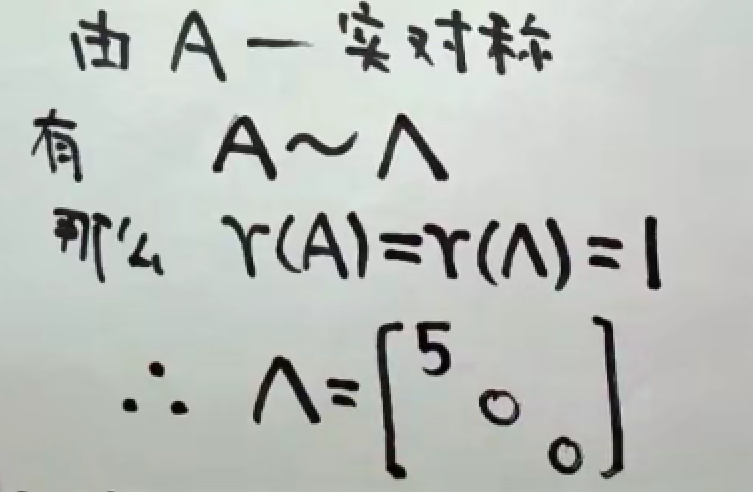 由 A — 实对称
有 A ~ Λ
那么 r(A) = r(Λ) = 1
∴ Λ = [5 0 0]